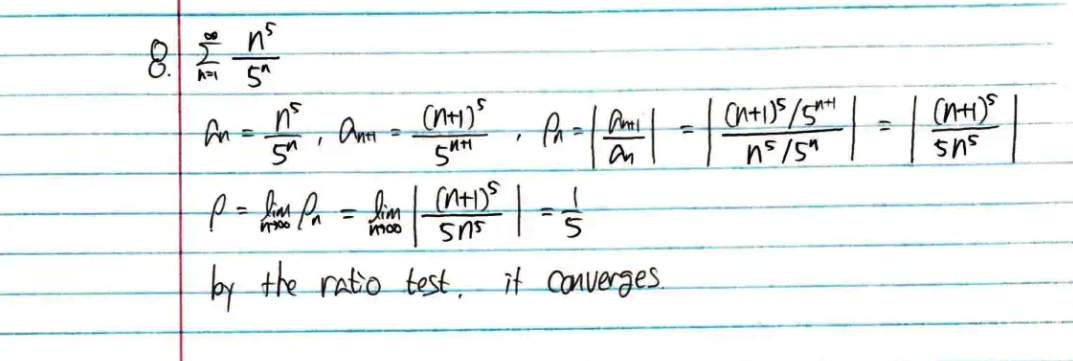 8. $\sum_{n=1}^{\infty} \frac{n^5}{5^n}$
$a_n = \frac{n^5}{5^n}, a_{n+1} = \frac{(n+1)^5}{5^{n+1}}, \rho_n = \left|\frac{a_{n+1}}{a_n}\right| = \left|\frac{(n+1)^5/5^{n+1}}{n^5/5^n}\right| = \left|\frac{(n+1)^5}{5n^5}\right|$
$\rho = \lim_{n\to\infty} \rho_n = \lim_{n\to\infty} \left|\frac{(n+1)^5}{5n^5}\right| = \frac{1}{5}$
by the ratio test, it converges.